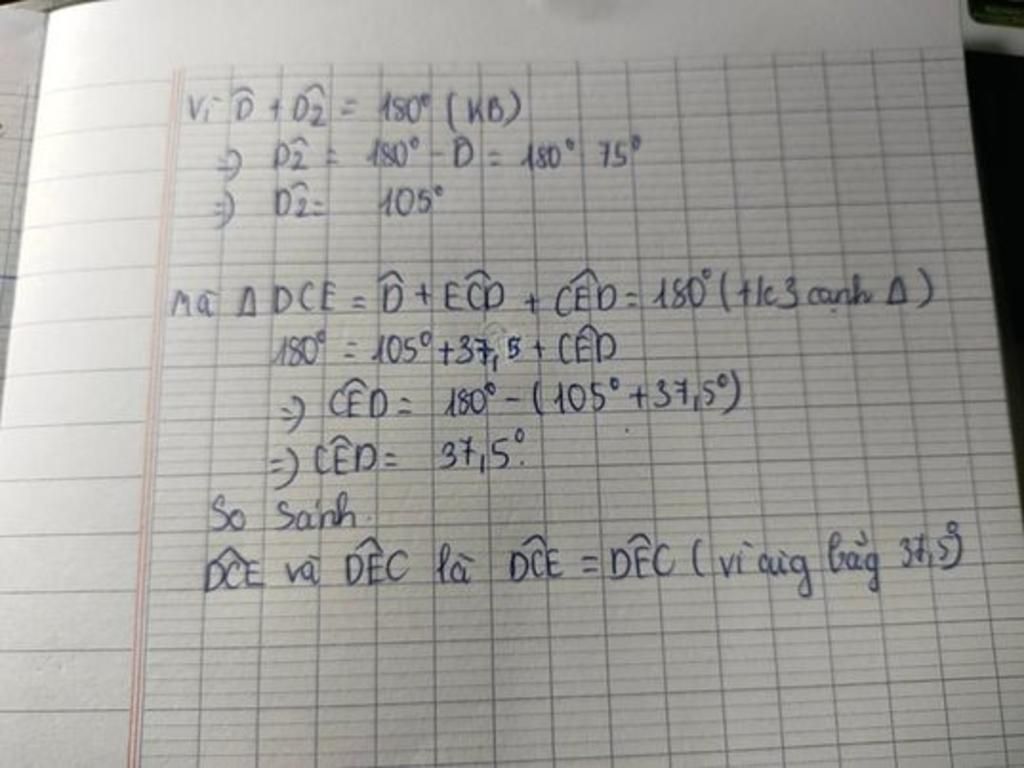 Vì D̂ + D̂2 = 180° (KB)
=) D̂2 = 180° - D = 180° 75°
=) D̂2 = 105°
Mà Δ DCE = D̂ + EĈD + CÊD = 180° (t/c 3 cạnh Δ)
180° = 105° + 37,5 + CÊD
=) CÊD = 180° - (105° + 37,5°)
=) CÊD = 37,5°.
So sánh.
DĈE và DÊC là DĈE = DÊC (vì cùg bằg 37,5°)